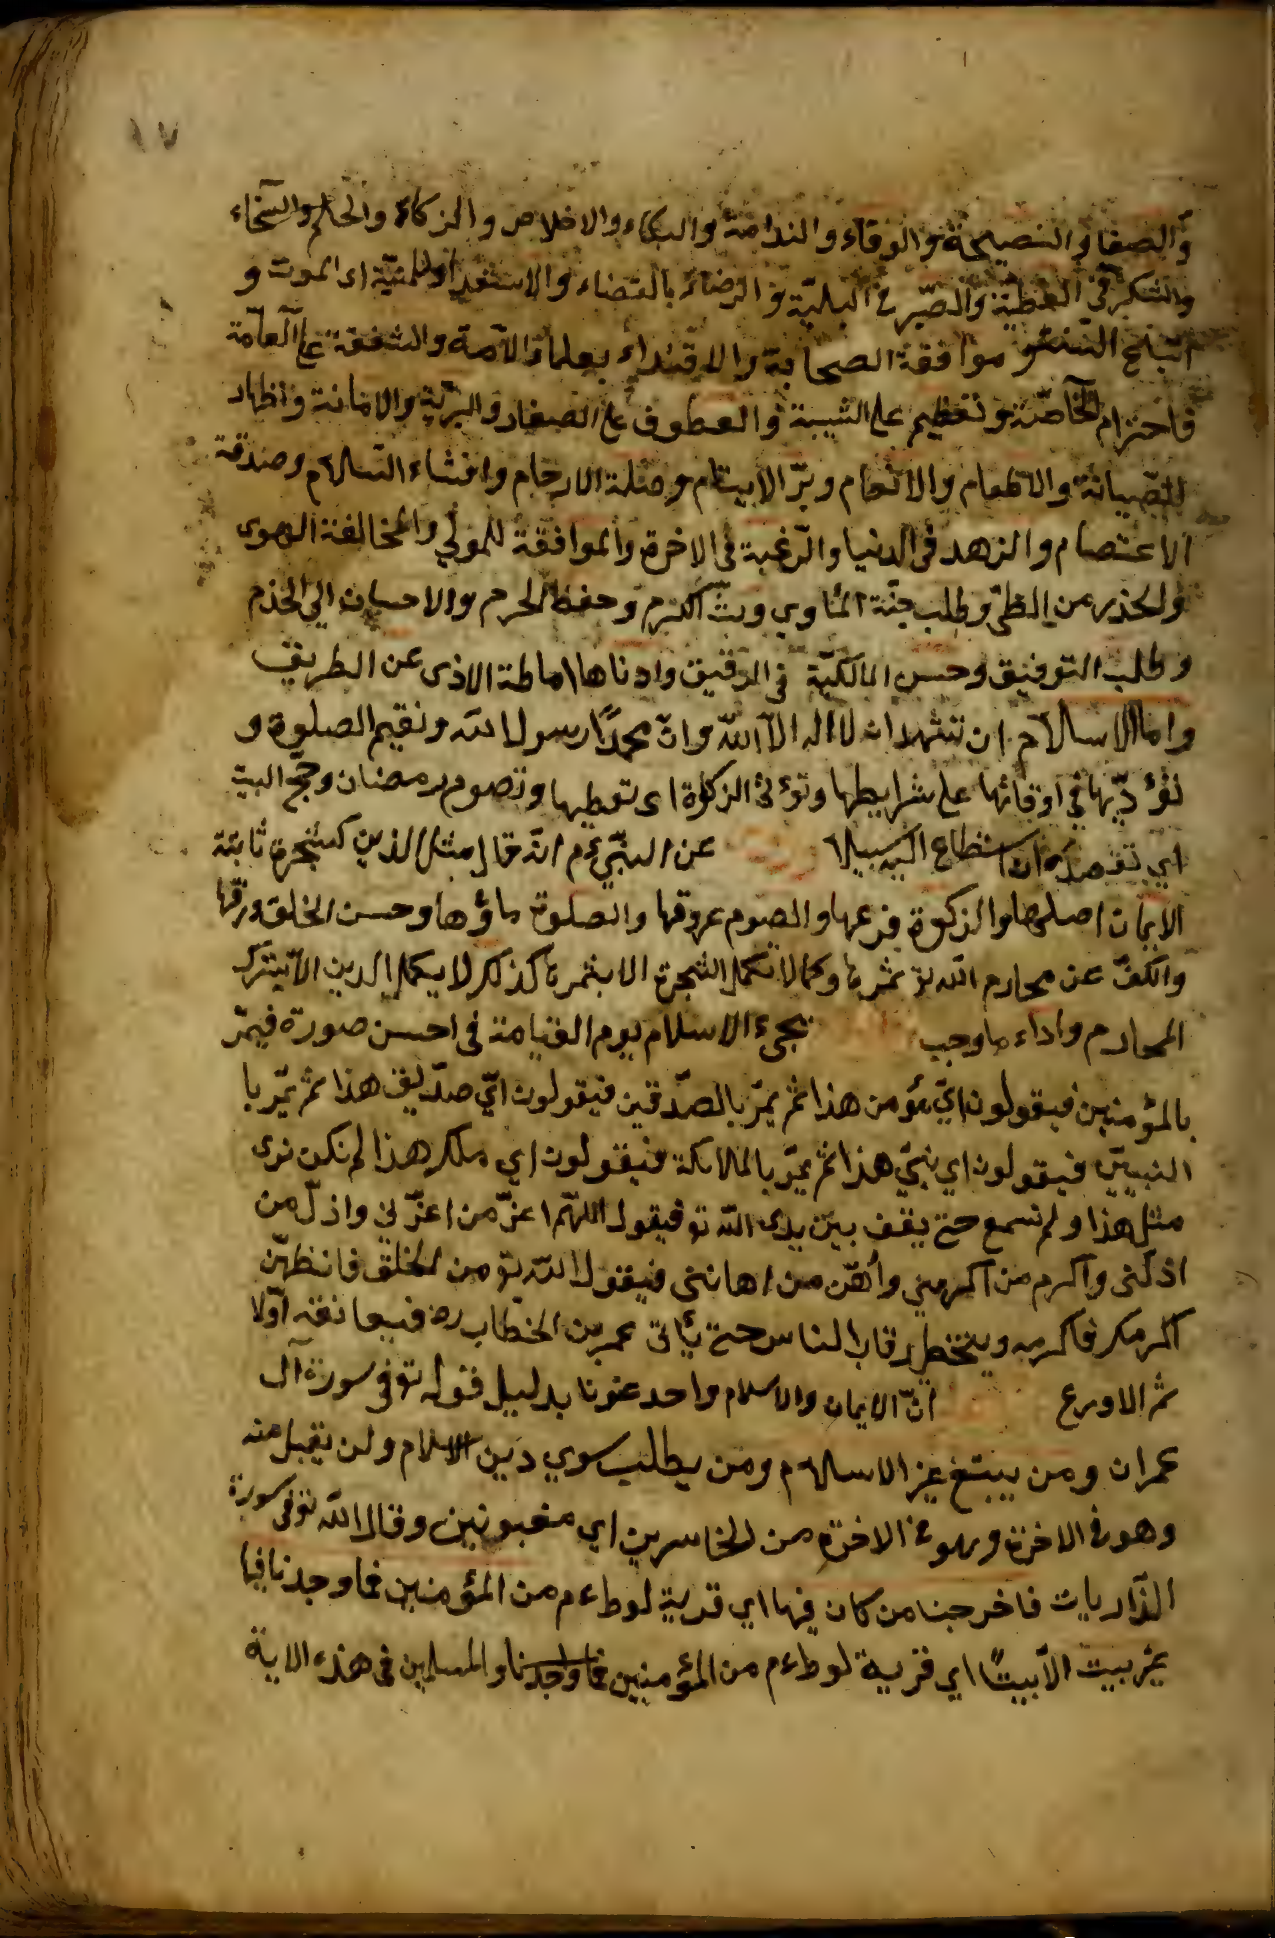 ١٧
والصفا والنصيحة والوفاء والندامة والبكاء والاخلاص والزكاة والحلم والسخاء
والشكر في العطيّة والصّبر في البليّة والرّضاء بالقضاء والاستعداد للمنيّة اى الموت و
اتباع السنن و موافقة الصحابة والاقتداء بعلماء الامّة والشفقة على العامّة
واحترام الخاصّة وتعظيم على الشيبة والعطوف على الصغار والبريّة والامانة واظهار
الصّيانة والاطعام والانعام وبرّ الايتام وصلة الارحام وافشاء السّلام وصدقة
الاعتصام والزهد فى الدنيا والرّغبة فى الاخرة والموافقة للمولي والمخالفة الهوى
والحذر من الظى وطلب جنّة المأوي وبثّ الكرم وحفظ الحرم والاحسان الي الخدم
وطلب التوفيق وحسن المالكيّة في الرقيق وادناها اماطة الاذى عن الطريق
واما الاسلام ان تشهد ان لا اله الا الله وان محمدًا رسول الله وتقيم الصلوة و
تؤدّيها في اوقاتها على شرايطها وتؤتى الزكوة اى تعطيها وتصوم رمضان وحجّ البيت
اي تقصده ان استطاع اليه سبيلا عن النبّي ءم انّه قال مثل الذين كشجرة ثابتة
الايمان اصلها والزكوة فرعها والصوم عروقها والصلوة ماؤها وحسن الخلق ورقها
والكفّ عن محارم الله تو ثمرتها وكما لا تكمل الشجرة الا بثمرتها كذلك لا يكمل الدين الا بترك
المحارم واداء ما وجب يجيء الاسلام يوم القيامة فى احسن صورة فيمرّ
بالمؤمنين فيقولون ايّ مؤمن هذا ثم يمرّ بالصدّقين فيقولون ايّ صدّيق هذا ثم يمرّ با
النبيين فيقولون اي نبيّ هذا ثم يمرّ بالملائكة فيقولون اي ملك هذا لم نكن نرى
مثل هذا ولم نسمع حتى يقف بين يدى الله تو فيقول اللهمّ اعزّ من اعزّني واذلّ من
اذلّنى واكرم من اكرمني وأهن من اهاننى فيقول الله تو من الخلق فانظهنّ
اكرمك فاكرمه ويتخطى رقاب الناس حتى يأتى عمر بن الخطاب ره فيعانقه اوّلا
ثم الاورع انّ الايمان والاسلام واحد عندنا بدليل قوله تو في سورة آل
عمران ومن يبتغ غير الاسلام ومن يطلب سوي دين الاسلام ولن يقبل منه
وهو فى الاخرة وهو فى الاخرة من الخاسرين اي مغبونين وقال الله تو فى سورة
الذّاريات فاخرجنا من كان فيها اي قرية لوط ءم من المؤمنين فما وجدنا فيها
غير بيت الا بيتًا اي قرية لوط ءم من المؤمنين فما وجدنا والمسلمين فى هذه الاية